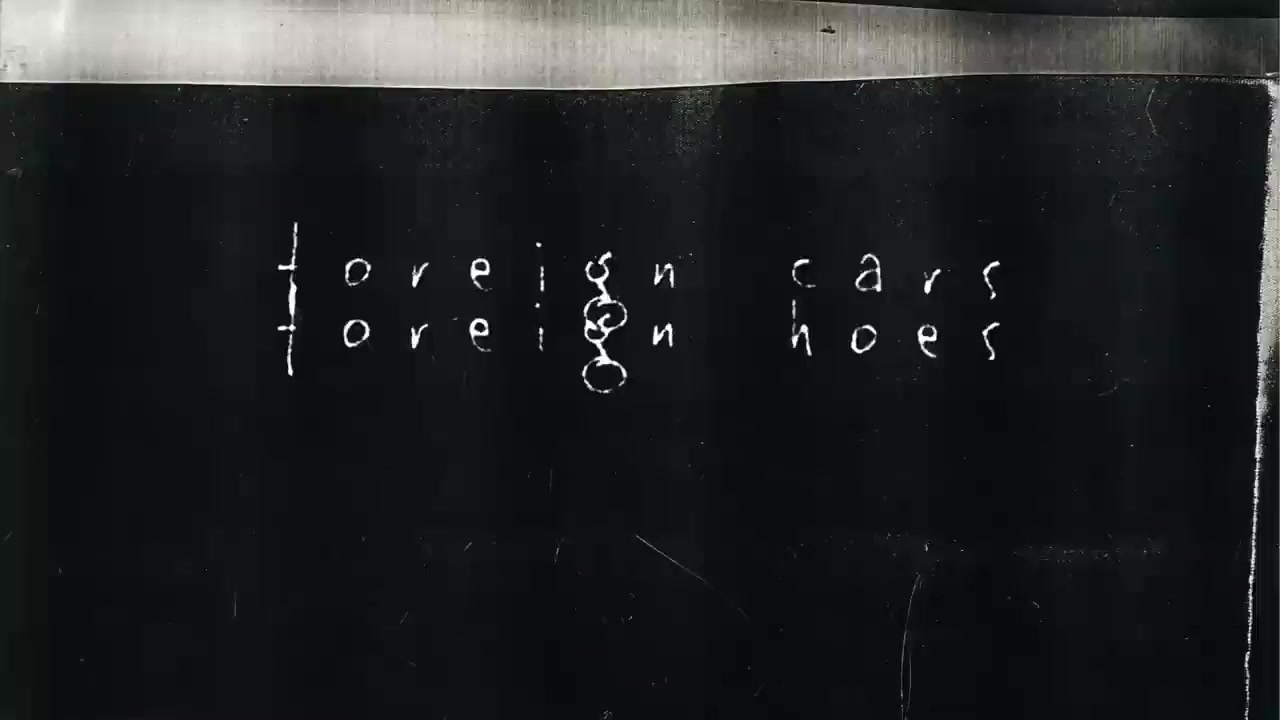 foreign cars
foreign hoes